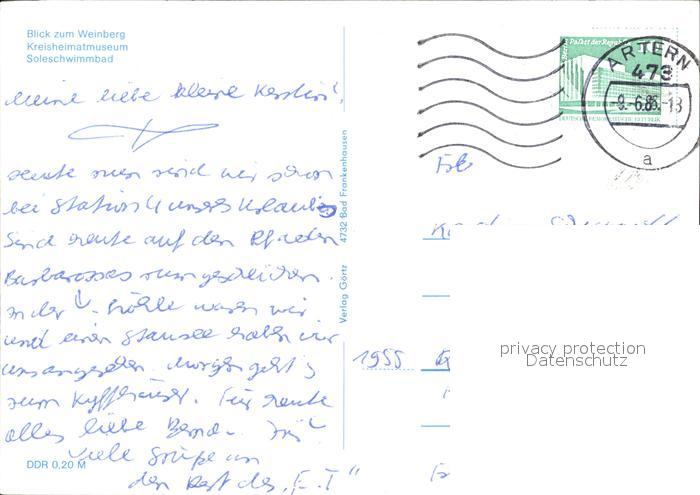 Blick zum Weinberg
Kreisheimatmuseum
Soleschwimmbad
Meine liebe kleine Kerstin!
heute nun sind wir schon
bei Station 4 unseres Urlaubs
Sind heute auf den Pfaden
Barbarossas rumgeschlichen.
In der Höhle waren wir
und einen Stausee haben wir
uns angesehen. Morgen geht's
zum Kyffhäuser. Für heute
alles liebe
Viele Grüße an
den Rest der "F.-I"
DDR 0,20 M
Verlag Görtz 4732 Bad Frankenhausen
Palast der Republik
DEUTSCHE DEMOKRATISCHE REPUBLIK
ARTERN
473
-9.-6.86.-18
a
1955
privacy protection
Datenschutz